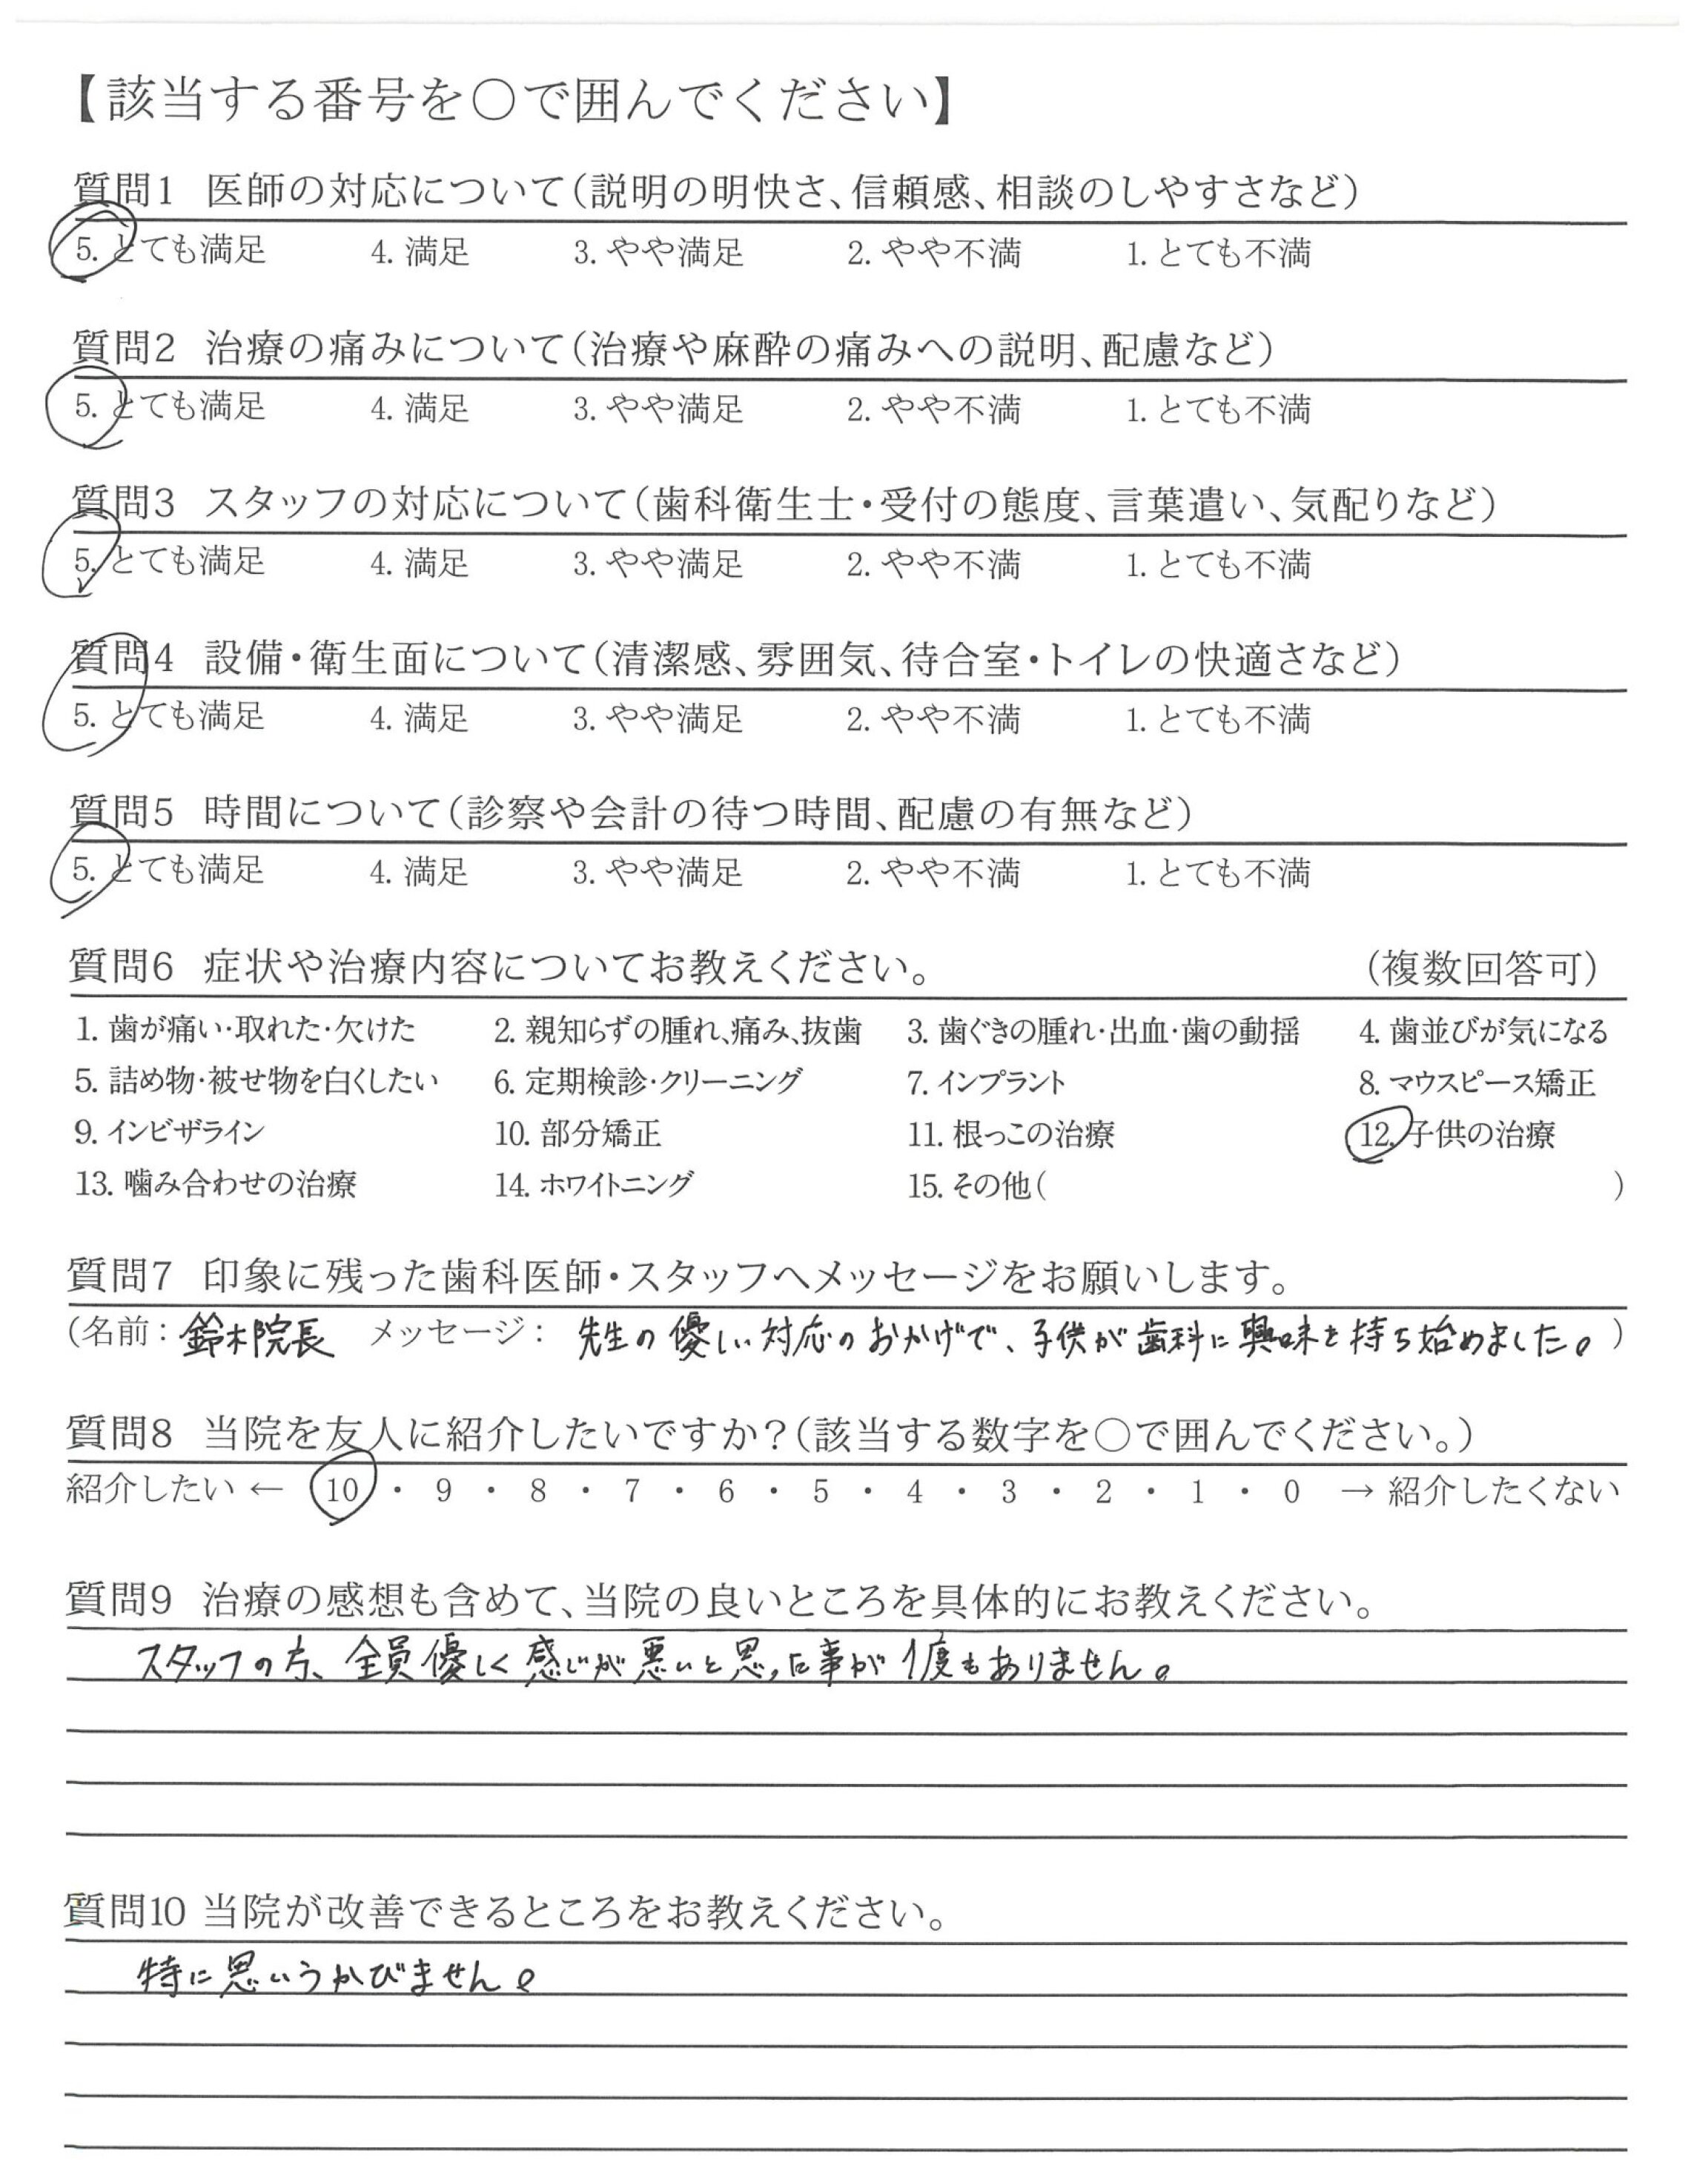 【該当する番号を○で囲んでください】
質問1 医師の対応について(説明の明快さ、信頼感、相談のしやすさなど)
5. とても満足 4. 満足 3. やや満足 2. やや不満 1. とても不満
質問2 治療の痛みについて(治療や麻酔の痛みへの説明、配慮など)
5. とても満足 4. 満足 3. やや満足 2. やや不満 1. とても不満
質問3 スタッフの対応について(歯科衛生士・受付の態度、言葉遣い、気配りなど)
5. とても満足 4. 満足 3. やや満足 2. やや不満 1. とても不満
質問4 設備・衛生面について(清潔感、雰囲気、待合室・トイレの快適さなど)
5. とても満足 4. 満足 3. やや満足 2. やや不満 1. とても不満
質問5 時間について(診察や会計の待つ時間、配慮の有無など)
5. とても満足 4. 満足 3. やや満足 2. やや不満 1. とても不満
質問6 症状や治療内容についてお教えください。 (複数回答可)
1. 歯が痛い・取れた・欠けた 2. 親知らずの腫れ、痛み、抜歯 3. 歯ぐきの腫れ・出血・歯の動揺 4. 歯並びが気になる
5. 詰め物・被せ物を白くしたい 6. 定期検診・クリーニング 7. インプラント 8. マウスピース矯正
9. インビザライン 10. 部分矯正 11. 根っこの治療 12. 子供の治療
13. 噛み合わせの治療 14. ホワイトニング 15. その他( )
質問7 印象に残った歯科医師・スタッフへメッセージをお願いします。
(名前：鈴木院長 メッセージ：先生の優しい対応のおかげで、子供が歯科に興味を持ち始めました。)
質問8 当院を友人に紹介したいですか?(該当する数字を○で囲んでください。)
紹介したい ← 10 ・ 9 ・ 8 ・ 7 ・ 6 ・ 5 ・ 4 ・ 3 ・ 2 ・ 1 ・ 0 → 紹介したくない
質問9 治療の感想も含めて、当院の良いところを具体的にお教えください。
スタッフの方、全員優しく感じが悪いと思った事が1度もありません。
質問10 当院が改善できるところをお教えください。
特に思いうかびません。